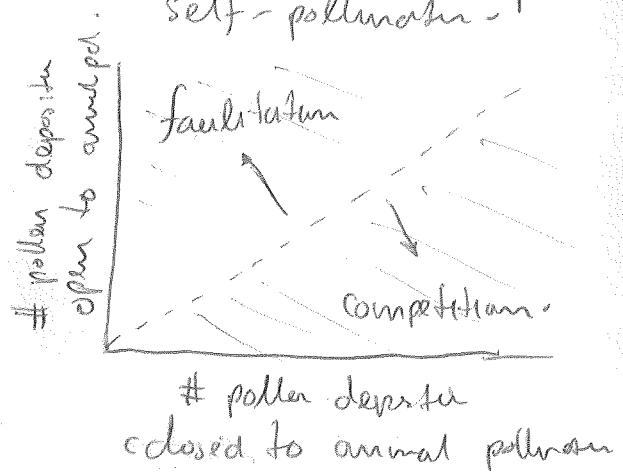 self-pollination - !
# pollen deposition
open to animal pol.
facilitation
competition.
# pollen deposition
closed to animal pollination